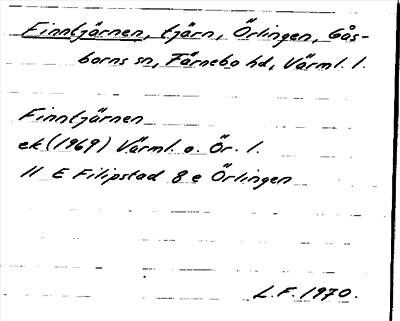 Finntjärnen, tjärn, Örlingen, Gås-
borns sn, Färnebo hd, Värml. l.
Finntjärnen
ek (1969) Värml. o. Ör. l.
11 E Filipstad 8 e Örlingen
L.F. 1970.